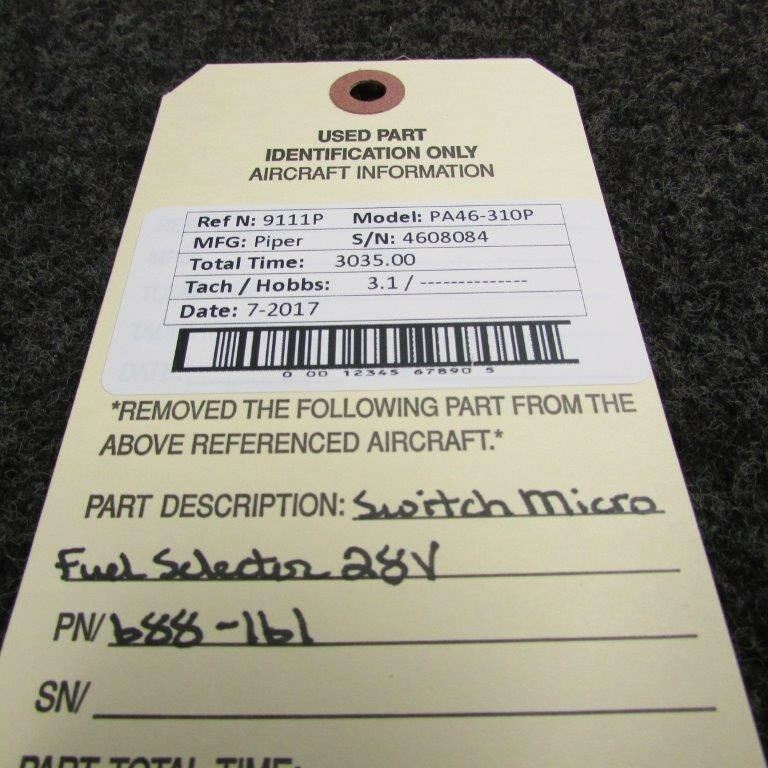 USED PART
IDENTIFICATION ONLY
AIRCRAFT INFORMATION
Ref N: 9111P Model: PA46-310P
MFG: Piper S/N: 4608084
Total Time: 3035.00
Tach / Hobbs: 3.1 / --------------
Date: 7-2017
0 00 12345 67890 5
*REMOVED THE FOLLOWING PART FROM THE
ABOVE REFERENCED AIRCRAFT.*
PART DESCRIPTION: Switch Micro
Fuel Selector 28V
PN/ 688-161
SN/
PART TOTAL TIME: